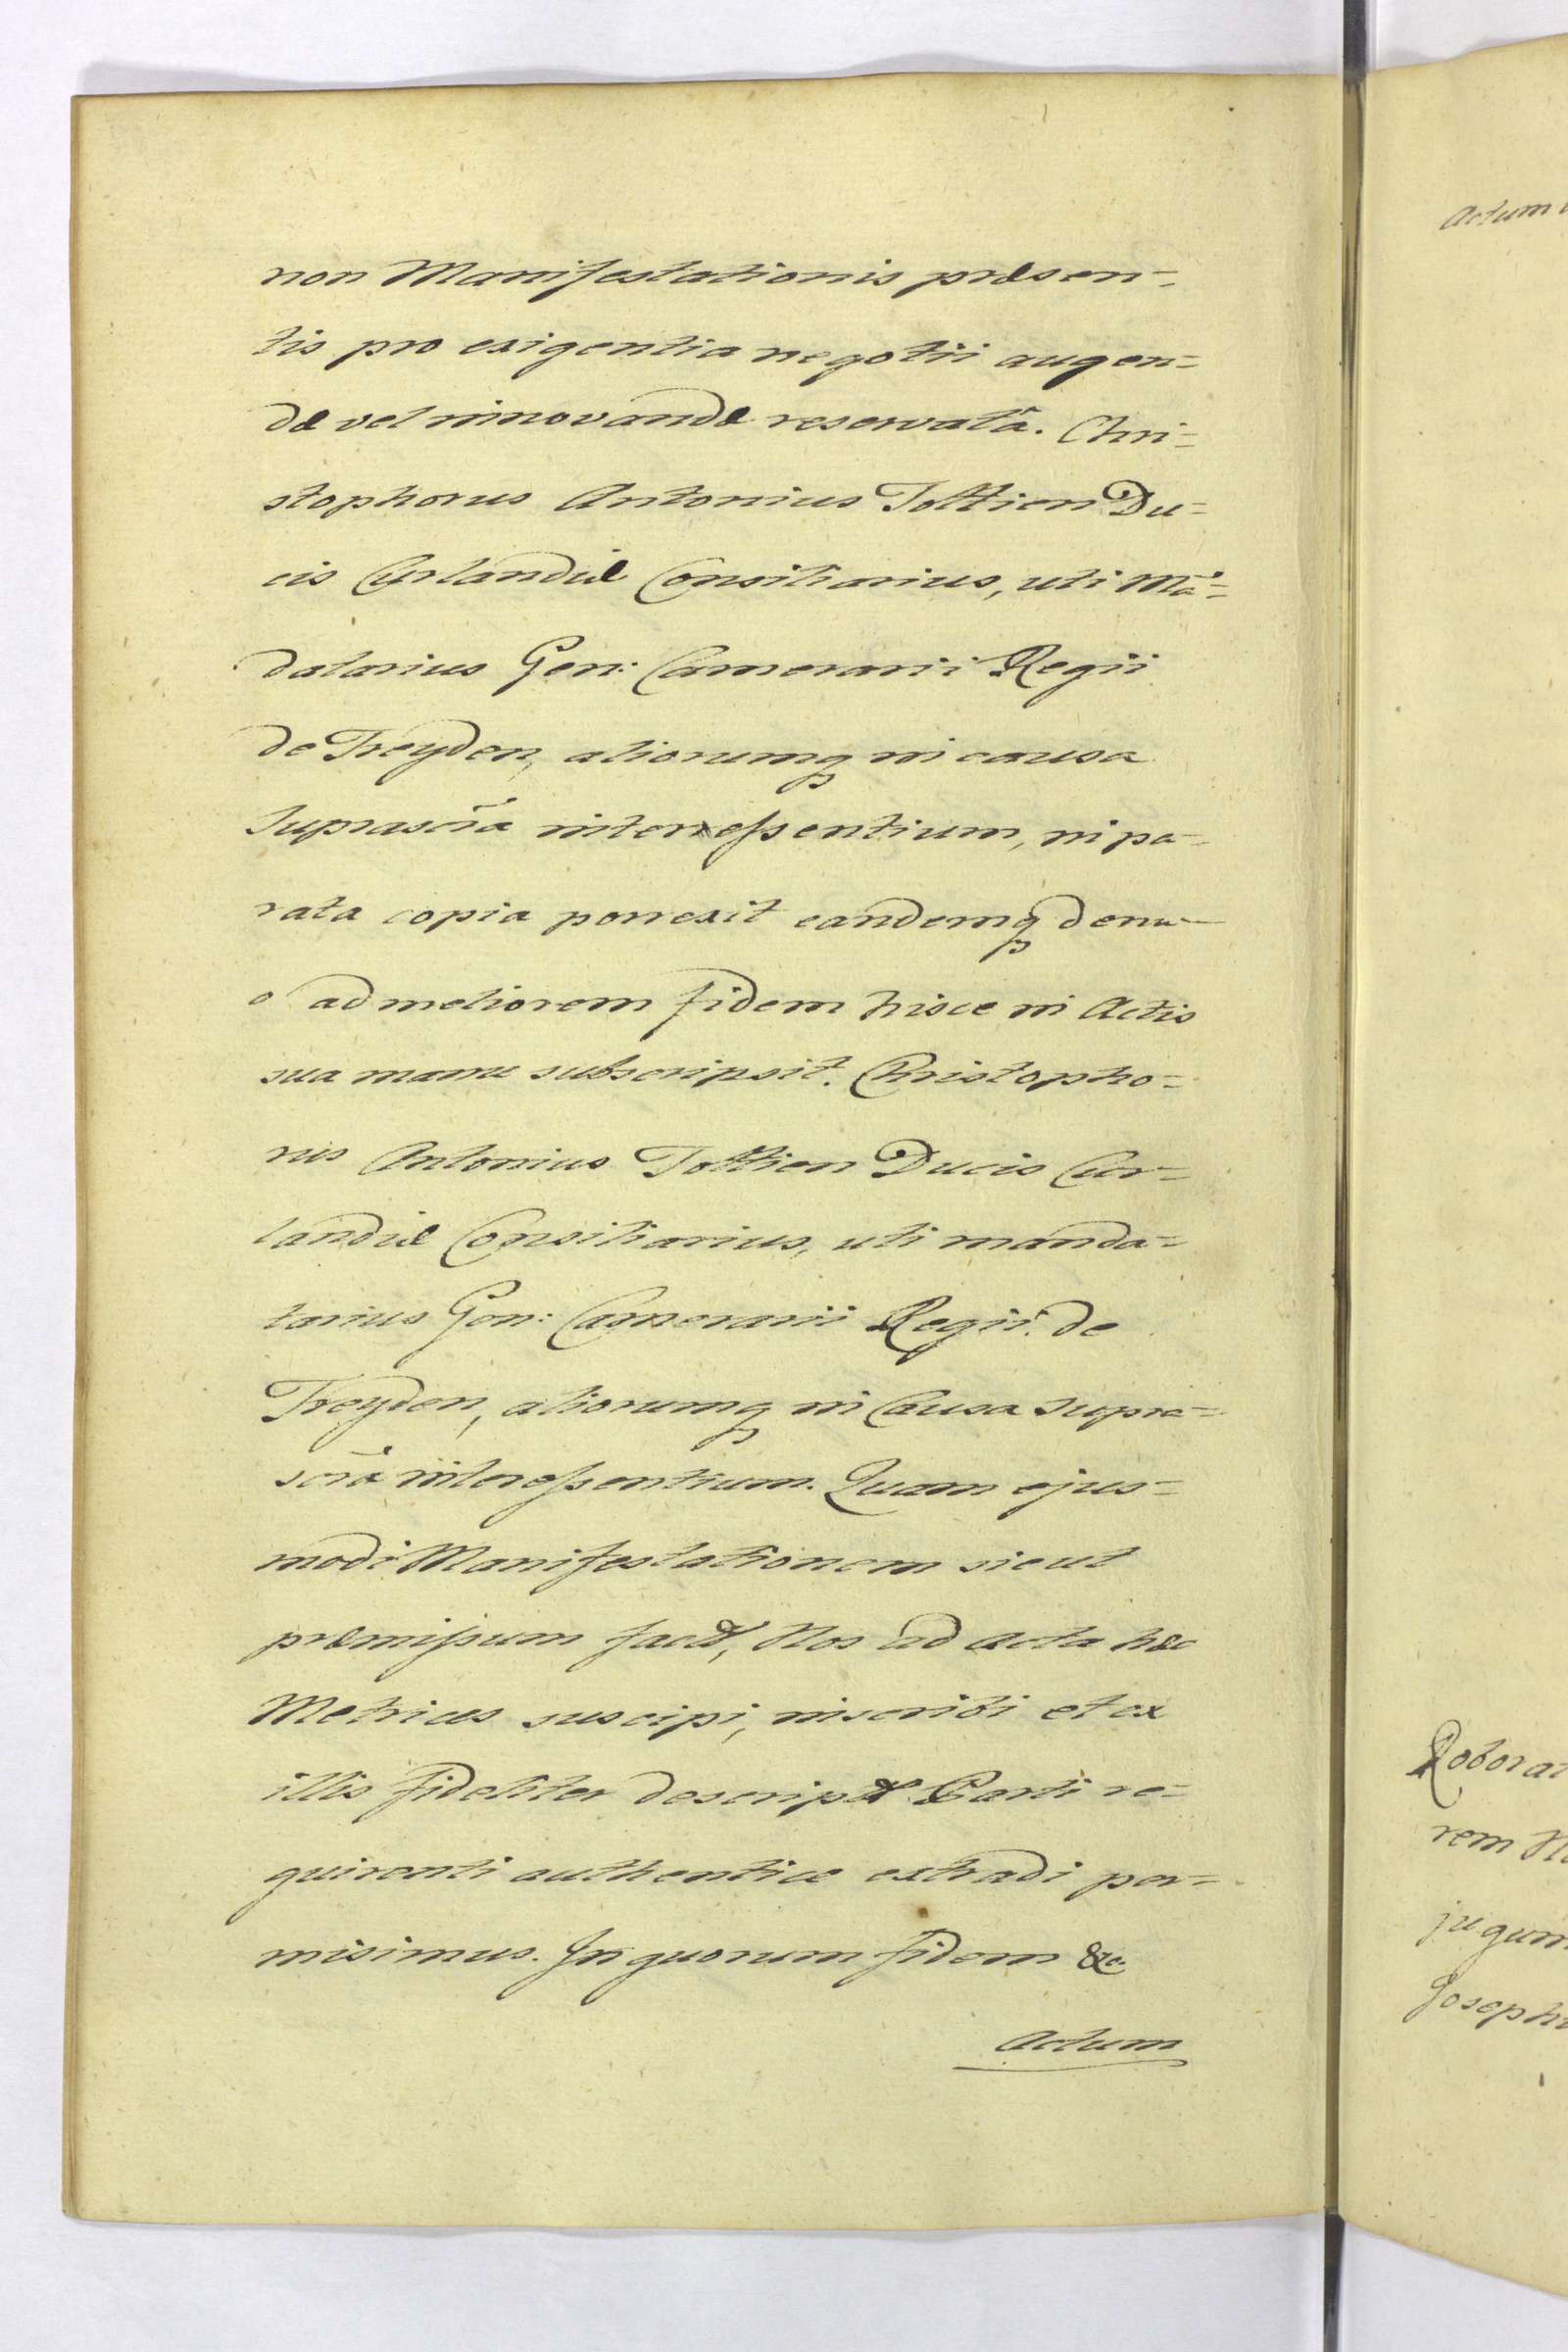 non Manifestationis præsen-
tis pro exigentia negotii augen=
dæ vel innovandæ reservatâ. Chri=
stophorus Antonius Tottien Du=
cis Curlandiæ Consiliarius, uti Mã=
datarius Gen: Camerarii Regii
de Treyden, aliorumq in causa
suprascr̃a interessentium, in pa-
rata copia porrexit eandemq denu-
o ad meliorem fidem hisce in Actis
sua manu subscripsit. Christopho=
rus Antonius Tottien Ducis Cur=
landiæ Consiliarius, uti manda=
tarius Gen: Camerarii Regii de
Treyden, aliorumq in Causa supra=
scr̃a interessentium. Quam ejus=
modi Manifestationem sicut
præmissum factã, Nos ad acta hæc
Metrices suscipi, inscribi et ex
illis fideliter descriptã Parti re=
quirenti authentice extradi per=
misimus. In quorum fidem &c.
Actum
Actum
Roborat
rem
jugum
Joseph